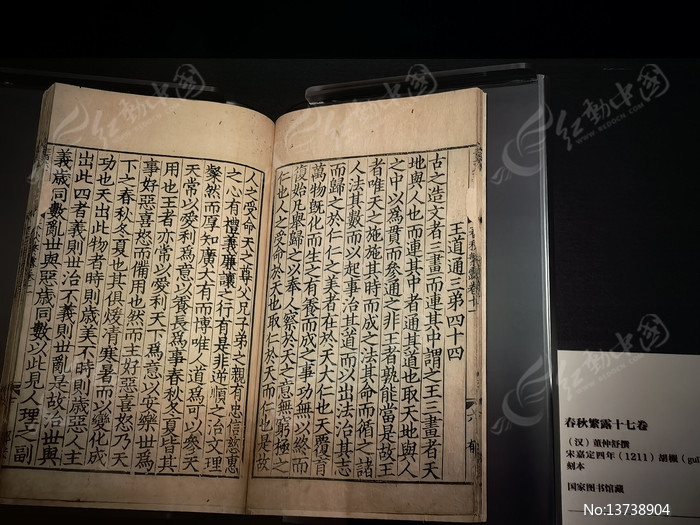 王道通三第四十四
古之造文者三畫而連其中謂之王三畫者天
地與人也而連其中者通其道也取天地與人
之中以為貫而參通之非王者孰能當是故王
者唯天之施施其時而成之法其命而循之諸
人法其數而以起事治其道而以出法治其志
而歸之於仁仁之美者在於天天仁也天覆育
萬物旣化而生之有養而成之事功無以然而
復始凡舉歸之以奉人察於天之意無窮極之
仁也人之受命於天也取仁於天而仁也是故
人之受命天之尊父兄子弟之親有忠信慈惠
之心有禮義廉讓之行有是非逆順之治文理
粲然而厚知廣大有而博唯人道為可以參天
天常以愛利為意以養長為事春秋冬夏皆其
用也王者亦常以愛利天下為意以安樂世為
事好惡喜怒而備用也然而主好惡喜怒乃天
下之春秋冬夏也其俱煖清寒暑而以變化成
功也天出此物者時則歲美不時則歲惡人主
出此四者義則世治不義則世亂是故治世與
義歲同數亂世與惡歲同數以此見人理之副
春秋繁露十七卷
（汉）董仲舒撰
宋嘉定四年（1211）胡槻（gu
刻本
国家图书馆藏
红动中国
WWW.REDOCN.COM
No:13738904